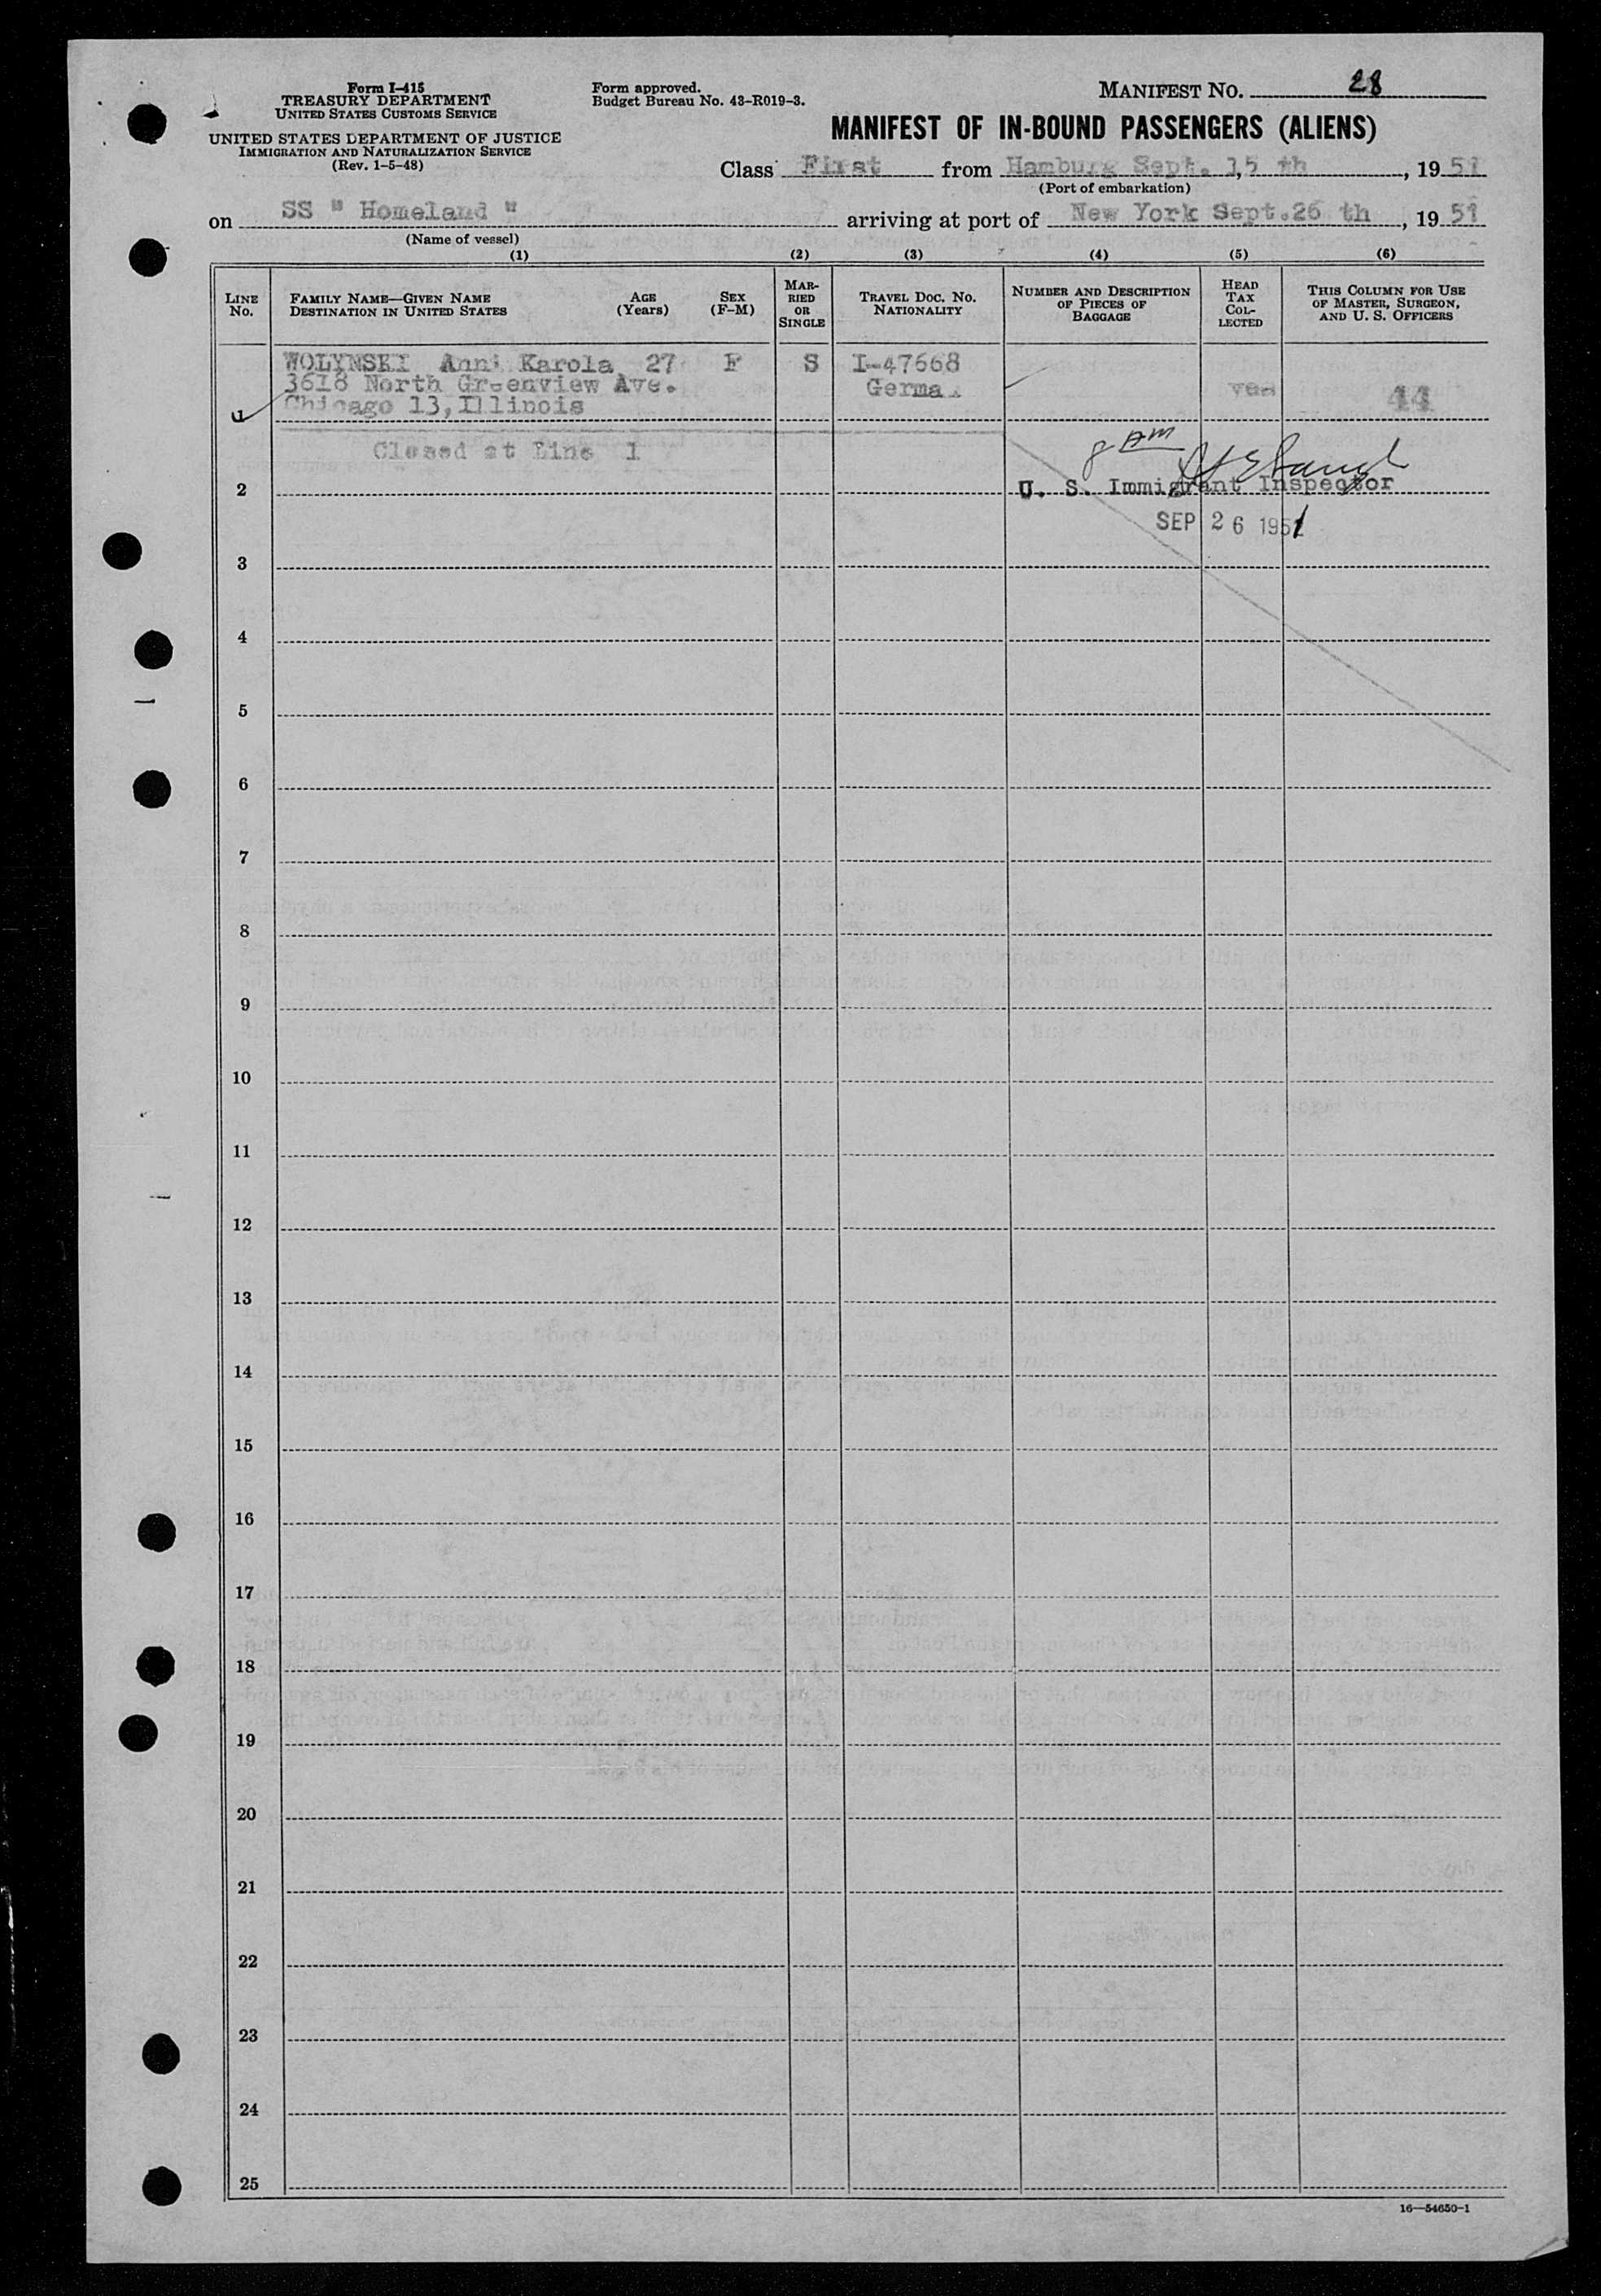 Form I-415
TREASURY DEPARTMENT
UNITED STATES CUSTOMS SERVICE
UNITED STATES DEPARTMENT OF JUSTICE
IMMIGRATION AND NATURALIZATION SERVICE
(Rev. 1-5-48)
Form approved.
Budget Bureau No. 43-R019-3.
MANIFEST NO. 28
MANIFEST OF IN-BOUND PASSENGERS (ALIENS)
Class First from Hamburg Sept. 15 th, 1951
(Port of embarkation)
on SS " Homeland " arriving at port of New York Sept.26 th, 1951
(Name of vessel)
(1) (2) (3) (4) (5) (6)
LINE No. FAMILY NAME—GIVEN NAME DESTINATION IN UNITED STATES AGE (Years) SEX (F-M) MARRIED OR SINGLE TRAVEL DOC. NO. NATIONALITY NUMBER AND DESCRIPTION OF PIECES OF BAGGAGE HEAD TAX COLLECTED THIS COLUMN FOR USE OF MASTER, SURGEON, AND U. S. OFFICERS
WOLYNSKI Anni Karola 27 F S I-47668
3618 North Greenview Ave. German yes 44
1 Chicago 13, Illinois
Closed at Line 1
8 AM
2 U. S. Immigrant Inspector
SEP 26 1951
3
4
5
6
7
8
9
10
11
12
13
14
15
16
17
18
19
20
21
22
23
24
25
16—54650-1